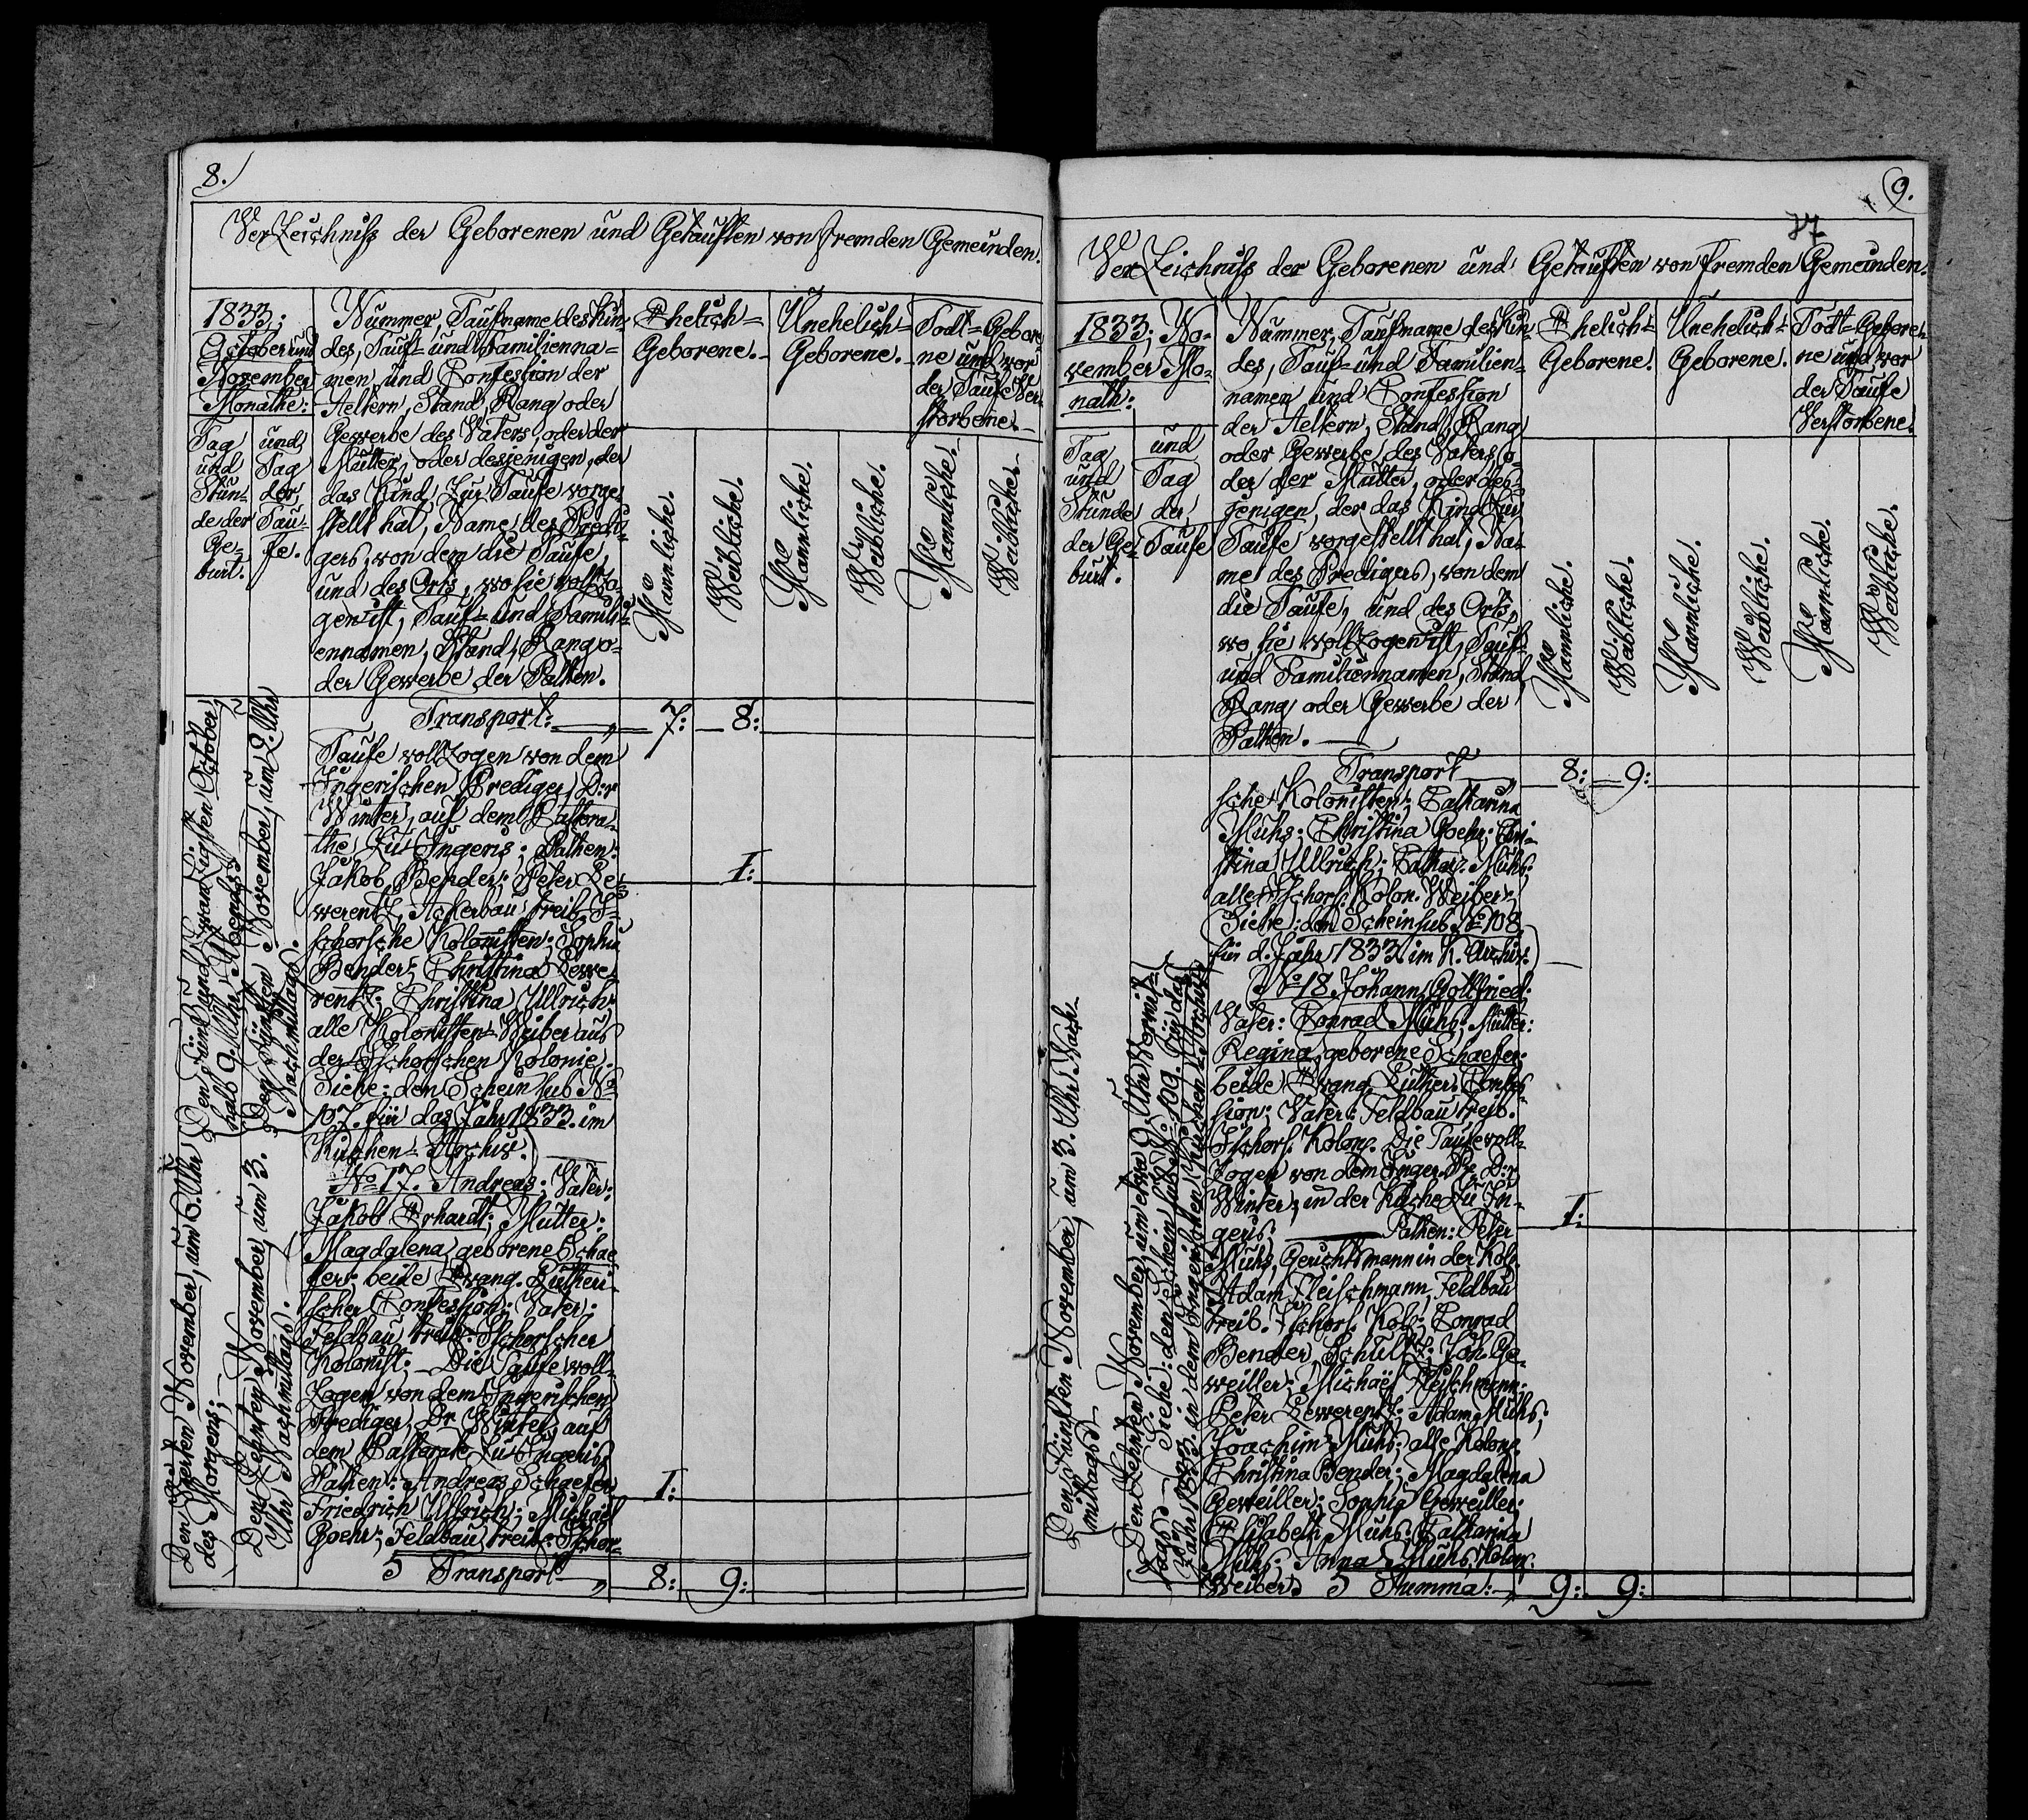 8.
Verzeichniß der Geborenen und Getauften von fremden Gemeinden.
1833;
October und
November
Monathe:
Tag
und
Stun-
de der
Ge-
burt.
und
Tag
der
Tau-
fe.
Nummer, Taufname des Kin-
des, Tauf- und Familienna-
men und Confession der
Aeltern, Stand, Rang oder
Gewerbe des Vaters, oder der
Mutter, oder desjenigen, der
das Kind zur Taufe vorge-
stellt hat, Name des Predi-
gers, von dem die Taufe,
und des Orts, wo sie vollzo-
gen ist, Tauf- und Famili-
ennamen, Stand, Rang o-
der Gewerbe der Pathen.
Ehelich-
Geborene.
Unehelich-
Geborene.
Todt-Gebore-
ne und vor
der Taufe Ver-
storbene.
Männliche.
Weibliche.
Männliche.
Weibliche.
Männliche.
Weibliche.
Transport: 7: 8:
Den fünf und zwanzigsten October,
halb 9. Uhr Abends.
Den fünften November, um 2. Uhr
Nachmittags.
Taufe vollzogen von dem
Ingerischen Prediger, D:r
Winter, auf dem Pastora-
the zu Ingeris; Pathen:
Jakob Bender; Peter Be- 1:
werentz, Ackerbau treib. I-
schorsche Kolonisten; Sophia
Bender; Christina Bewe-
rentz; Christina Ullrich;
alle Kolonisten-Weiber aus
der Ischorschen Kolonie.
Siehe: den Schein sub No
107. für das Jahr 1833. im
Kirchen-Archiv.
Den vierten November, um 6. Uhr
des Morgens.
Den Zehnten November, um 3.
Uhr Nachmittags.
No 17. Andreas; Vater:
Jakob Erhardt; Mutter:
Magdalena, geborene Schae-
fer; beide Evang. Lutheri-
scher Confession; Vater:
Feldbau treib. Ischorscher
Kolonist. Die Taufe voll-
zogen von dem Ingerischen
Prediger, Dr Winter auf
dem Pastorate zu Ingeris;
Pathen: Andreas Schaefer; 1:
Friedrich Ullrich; Michael
Goehr; Feldbau treib. Ischor-
Transport 8: 9:
9.
77
Verzeichniß der Geborenen und Getauften von fremden Gemeinden.
1833; No-
vember Mo-
nath:
Tag
und
Stunde
der Ge-
burt.
und
Tag
der
Taufe
Nummer, Taufname des Kin-
des, Tauf- und Familien-
namen und Confession
der Aeltern, Stand, Rang
oder Gewerbe des Vaters o-
der der Mutter, oder des-
jenigen, der das Kind zur
Taufe vorgestellt hat, Na-
me des Predigers, von dem
die Taufe, und des Orts,
wo sie vollzogen ist, Tauf-
und Familiennamen, Stand
Rang oder Gewerbe der
Pathen.
Ehelich-
Geborene.
Unehelich-
Geborene.
Todt-Gebore-
ne und vor
der Taufe
Verstorbene.
Männliche.
Weibliche.
Männliche.
Weibliche.
Männliche.
Weibliche.
Transport 8: 9:
sche Kolonisten; Catharina
Muhs; Christina Goehr; Chri-
stina Ullrich; Cathar. Muhs;
alle Ischors. Kolon. Weiber.
Siehe: den Schein sub No 108.
für d. Jahr 1833. im K. Archiv.
Den fünften November, um 3. Uhr Nach-
mittags.
Den Zehnten November, um etwa 9. Uhr Vormit-
tags. Siehe: den Schein sub No 109. für das
Jahr 1833. in dem Ingerischen Kirchen-Archiv
No 18. Johann Gottfried;
Vater: Conrad Muhs; Mutter:
Regina, geborene Schaefer;
beide Evang. Luther. Confes-
sion; Vater: Feldbau treib.
Ischors. Kolon. Die Taufe voll-
zogen von dem Inger. Pr. D:r
Winter, in der Kirche zu In-
geris. Pathen: Peter 1:
Muhs, Gerichtsmann in der Kolo.
Adam Fleischmann, Feldbau
treib. Ischors. Kol.; Conrad
Bender, Schultz; Joh. Ge-
weiller; Michael Fleischmann;
Peter Bewerentz; Adam Muhs;
Joachim Muhs; alle Kolon.
Christina Bender; Magdalena
Geweiller; Sophia Geweiller;
Elisabeth Muhs; Catharina
Muhs; Anna Muhs, Kolon.
Weiber. Summa: 9: 9: